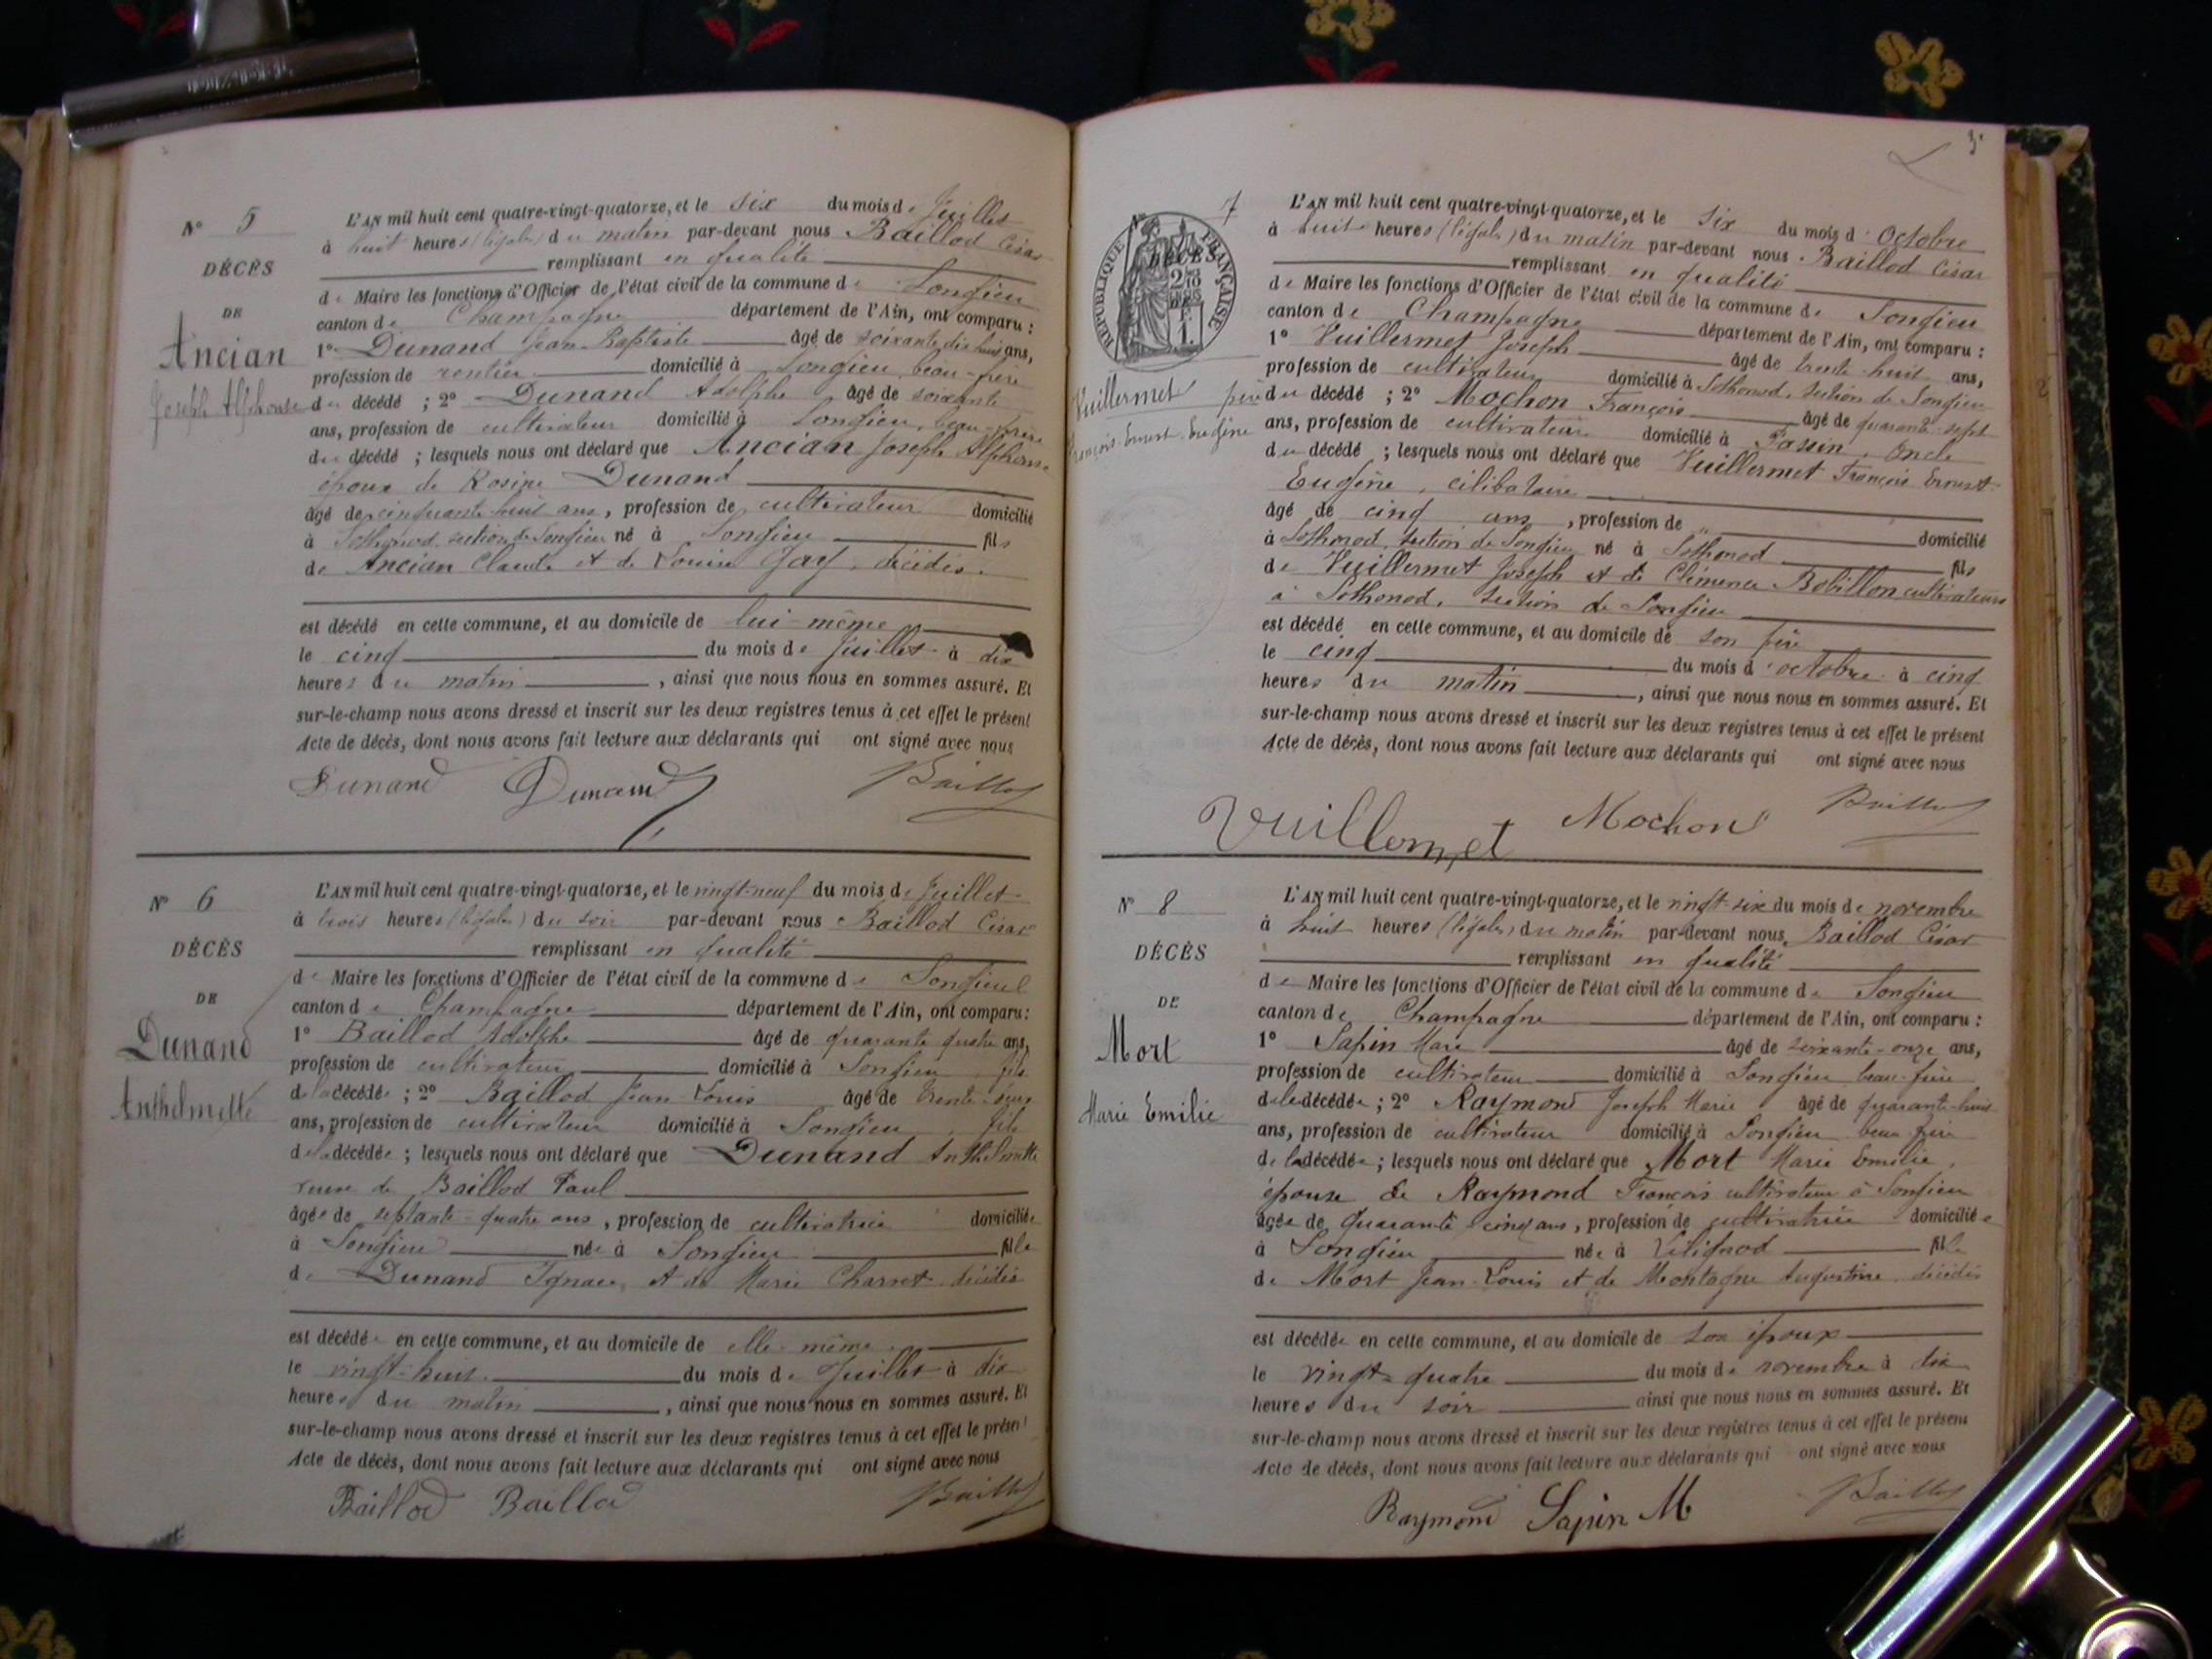 N° 5
DÉCÈS
DE
Ancian
Joseph Alphonse
L'AN mil huit cent quatre-vingt-quatorze, et le six du mois de Juillet
à huit heures (légales) du matin par-devant nous Baillod César
remplissant en qualité
de Maire les fonctions d'Officier de l'état civil de la commune de Songieu
canton de Champagne département de l'Ain, ont comparu :
1° Dunand Jean-Baptiste âgé de soixante dix huit ans,
profession de rentier domicilié à Songieu, beau-frère
du décédé ; 2° Dunand Adolphe âgé de soixante
ans, profession de cultivateur domicilié à Songieu, beau-frère
du décédé ; lesquels nous ont déclaré que Ancian Joseph Alphonse
époux de Rosine Dunand
âgé de cinquante huit ans, profession de cultivateur domicilié
à Sothonod, section de Songieu né à Songieu fils
de Ancian Claude et de Louise Jay, décédés.
est décédé en cette commune, et au domicile de lui-même
le cinq du mois de Juillet à dix
heures du matin, ainsi que nous nous en sommes assuré. Et
sur-le-champ nous avons dressé et inscrit sur les deux registres tenus à cet effet le présent
Acte de décès, dont nous avons fait lecture aux déclarants qui ont signé avec nous
Dunand Dunand Baillod
N° 6
DÉCÈS
DE
Dunand
Anthelmette
L'AN mil huit cent quatre-vingt-quatorze, et le vingt-neuf du mois de Juillet
à trois heures (légales) du soir par-devant nous Baillod César
remplissant en qualité
de Maire les fonctions d'Officier de l'état civil de la commune de Songieu
canton de Champagne département de l'Ain, ont comparu :
1° Baillod Adolphe âgé de quarante quatre ans,
profession de cultivateur domicilié à Songieu, fils
de la décédée ; 2° Baillod Jean Louis âgé de trente
ans, profession de cultivateur domicilié à Songieu, fils
de la décédée ; lesquels nous ont déclaré que Dunand Anthelmette
veuve de Baillod Paul
âgée de septante-quatre ans, profession de cultivatrice domiciliée
à Songieu née à Songieu fille
de Dunand Ignace et de Marie Charvet décédés
est décédée en cette commune, et au domicile de elle-même
le vingt-huit du mois de Juillet à dix
heures du matin, ainsi que nous nous en sommes assuré. Et
sur-le-champ nous avons dressé et inscrit sur les deux registres tenus à cet effet le présent
Acte de décès, dont nous avons fait lecture aux déclarants qui ont signé avec nous
Baillod Baillod Baillod
N° 7
RÉPUBLIQUE FRANÇAISE
DÉCÈS
Vuillermet
François Ernest Eugène
L'AN mil huit cent quatre-vingt-quatorze, et le six du mois d'octobre
à huit heures (légales) du matin par-devant nous Baillod César
remplissant en qualité
de Maire les fonctions d'Officier de l'état civil de la commune de Songieu
canton de Champagne département de l'Ain, ont comparu :
1° Vuillermet Joseph âgé de trente-huit ans,
profession de cultivateur domicilié à Sothonod, section de Songieu
père du décédé ; 2° Mochon François âgé de quarante-sept
ans, profession de cultivateur domicilié à Passin, oncle
du décédé ; lesquels nous ont déclaré que Vuillermet François Ernest
Eugène, célibataire
âgé de cinq ans, profession de " domicilié
à Sothonod, section de Songieu né à Sothonod fils
de Vuillermet Joseph et de Clémence Bobillon, cultivateurs
à Sothonod, section de Songieu
est décédé en cette commune, et au domicile de son père
le cinq du mois d'octobre à cinq
heures du matin, ainsi que nous nous en sommes assuré. Et
sur-le-champ nous avons dressé et inscrit sur les deux registres tenus à cet effet le présent
Acte de décès, dont nous avons fait lecture aux déclarants qui ont signé avec nous
Vuillermet Mochon Baillod
N° 8
DÉCÈS
DE
Mort
Marie Emilie
L'AN mil huit cent quatre-vingt-quatorze, et le vingt-six du mois de novembre
à huit heures (légales) du matin par-devant nous Baillod César
remplissant en qualité
de Maire les fonctions d'Officier de l'état civil de la commune de Songieu
canton de Champagne département de l'Ain, ont comparu :
1° Sapin Marie âgé de soixante-onze ans,
profession de cultivateur domicilié à Songieu beau-frère
de la décédée ; 2° Raymond Joseph Marie âgé de quarante-huit
ans, profession de cultivateur domicilié à Songieu beau frère
de la décédée ; lesquels nous ont déclaré que Mort Marie Emilie,
épouse de Raymond François cultivateur à Songieu
âgée de quarante cinq ans, profession de cultivatrice domiciliée
à Songieu née à Lilignod fille
de Mort Jean-Louis et de Montagne Augustine, décédés
est décédée en cette commune, et au domicile de son époux
le vingt-quatre du mois de novembre à dix
heures du soir ainsi que nous nous en sommes assuré. Et
sur-le-champ nous avons dressé et inscrit sur les deux registres tenus à cet effet le présent
Acte de décès, dont nous avons fait lecture aux déclarants qui ont signé avec nous
Raymond Sapin M Baillod